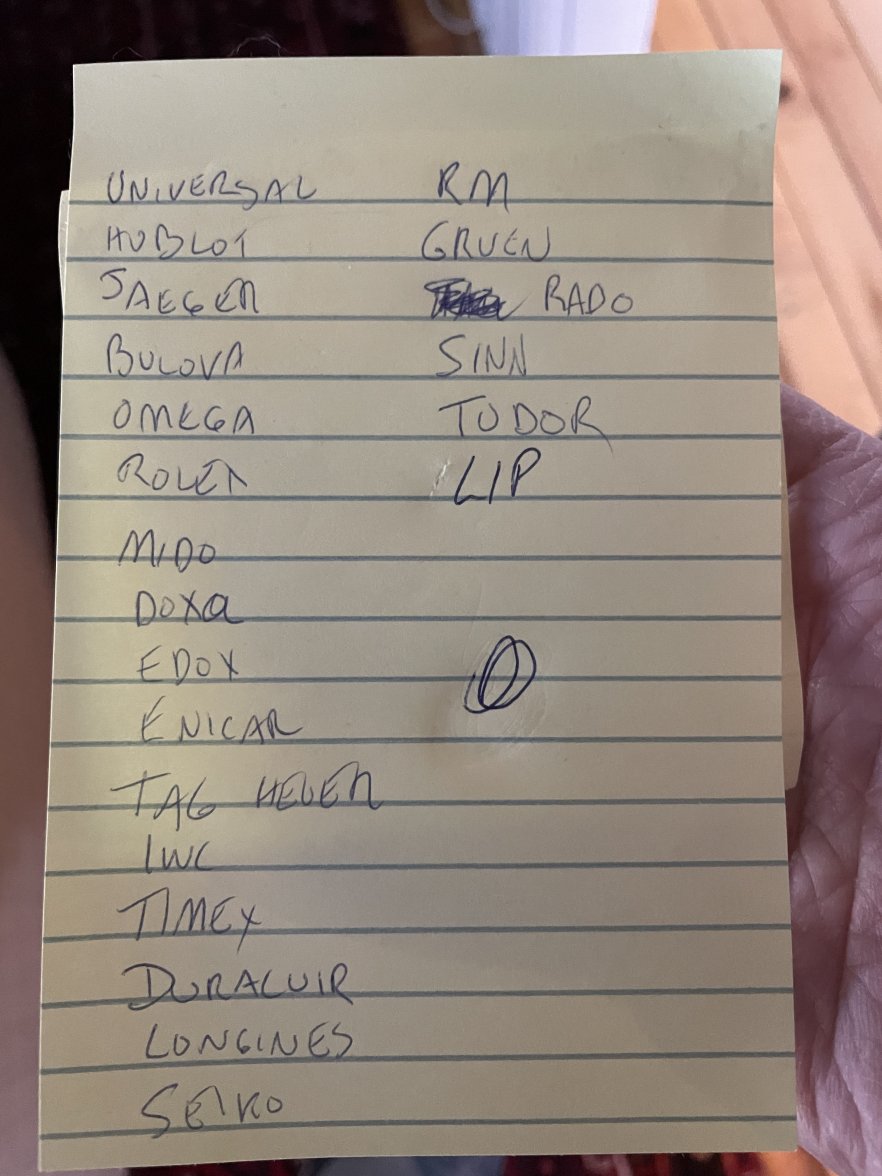 UNIVERSAL
HUBLOT
JAEGER
BULOVA
OMEGA
ROLEX
MIDO
DOXA
EDOX
ENICAR
TAG HEUER
IWC
TIMEX
DURACUIR
LONGINES
SEIKO
RM
GRUEN
RADO
SINN
TUDOR
LIP